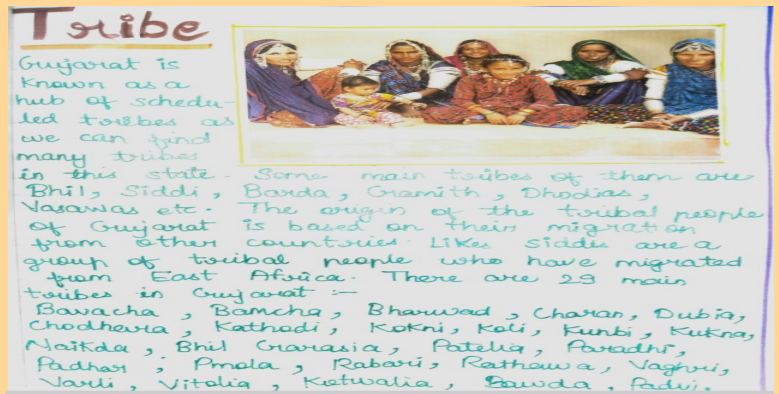 Tribe
Gujarat is
known as a
hub of schedu-
led tribes as
we can find
many tribes
in this state. Some main tribes of them are
Bhil, Siddi, Barda, Gramith, Dhodias,
Vasawas etc. The origin of the tribal people
of Gujarat is based on their migration
from other countries. Likes siddis are a
group of tribal people who have migrated
from East Africa. There are 29 main
tribes in Gujarat :-
Bavacha, Bamcha, Bharwad, Charan, Dubia,
Chodhevra, Kathodi, Kokni, Koli, Kunbi, Kukna,
Naikda, Bhil Garasia, Patelia, Paradhi,
Padhar, Pmola, Rabari, Rathawa, Vaghri,
Varli, Vitolia, Kotwalia, Bawda, Padvi.